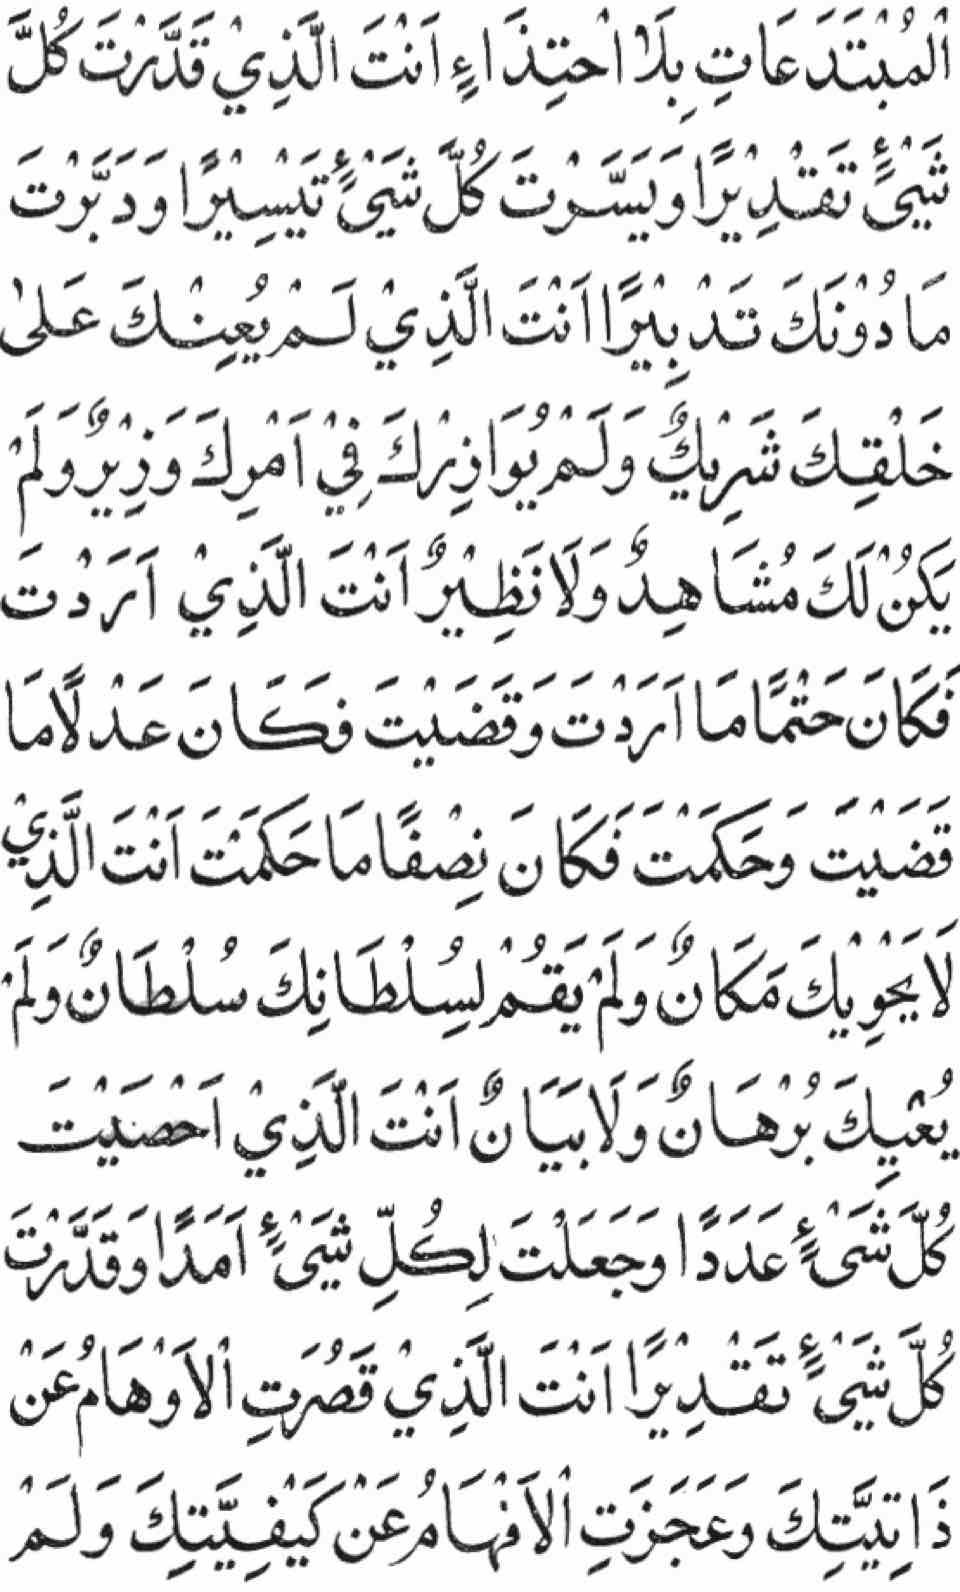 الْمُبْتَدَعَاتِ بِلَا احْتِذَاءٍ اَنْتَ الَّذِيْ قَدَّرْتَ كُلَّ
شَيْءٍ تَقْدِيْرًا وَيَسَّرْتَ كُلَّ شَيْءٍ تَيْسِيْرًا وَدَبَّرْتَ
مَا دُوْنَكَ تَدْبِيْرًا اَنْتَ الَّذِيْ لَمْ يُعِنْكَ عَلٰى
خَلْقِكَ شَرِيْكٌ وَلَمْ يُوَازِرْكَ فِيْ اَمْرِكَ وَزِيْرٌ وَلَمْ
يَكُنْ لَكَ مُشَاهِدٌ وَلَا نَظِيْرٌ اَنْتَ الَّذِيْ اَرَدْتَ
فَكَانَ حَتْمًا مَا اَرَدْتَ وَقَضَيْتَ فَكَانَ عَدْلًا مَا
قَضَيْتَ وَحَكَمْتَ فَكَانَ نِصْفًا مَا حَكَمْتَ اَنْتَ الَّذِيْ
لَا يَحْوِيْكَ مَكَانٌ وَلَمْ يَقُمْ لِسُلْطَانِكَ سُلْطَانٌ وَلَمْ
يُعْيِكَ بُرْهَانٌ وَلَا بَيَانٌ اَنْتَ الَّذِيْ اَحْصَيْتَ
كُلَّ شَيْءٍ عَدَدًا وَجَعَلْتَ لِكُلِّ شَيْءٍ اَمَدًا وَقَدَّرْتَ
كُلَّ شَيْءٍ تَقْدِيْرًا اَنْتَ الَّذِيْ قَصُرَتِ الْاَوْهَامُ عَنْ
ذَاتِيَّتِكَ وَعَجَزَتِ الْاَفْهَامُ عَنْ كَيْفِيَّتِكَ وَلَمْ